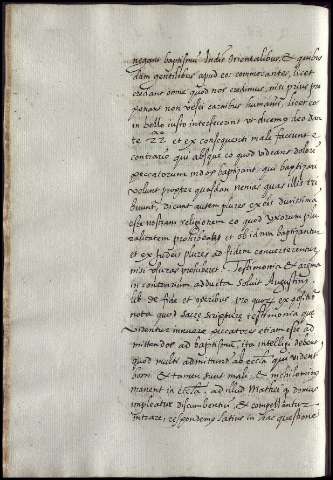 negant baptismũ Indis Orientalibus, & quibus
dam gentilibus apud eos commorantes, licet
credant omne quod nos credimus, nisi prius pro
ponant non vesci carnibus humanis, licet eos
in bello iusto interficerent ut dicemus
te 22 et ex consequenti male faciunt e
contrario, qui absque eo quod videant dolorẽ
peccatorum modo baptizant, qui baptizari
volunt propter quasdam nenias quas illis tri
buunt, dicunt autem plures ex eis durissimã
esse nostram religionem eo quod uxorum plu
ralitatem prohibeat et ob id non baptizantur
et ex Iudeis plures ad fidem converterentur
nisi usuras prohiberet. Testimonia et argum
in contrarium adducta solvit Augustinus
lib de fide et operibus pro quorum expositio
nota quod sacre scripture testimonia que
videntur innuere peccatores etiam esse ad
mittendos ad baptismũ, ita intelligi debent
quod multi admittunt ab ecclã qui videntur
boni & tamen sunt mali, & nihilominus
manent in ecclã, ad illud Mathei
discumbentiũ, & compelluntur
intrare, respondemus latius in hac questione